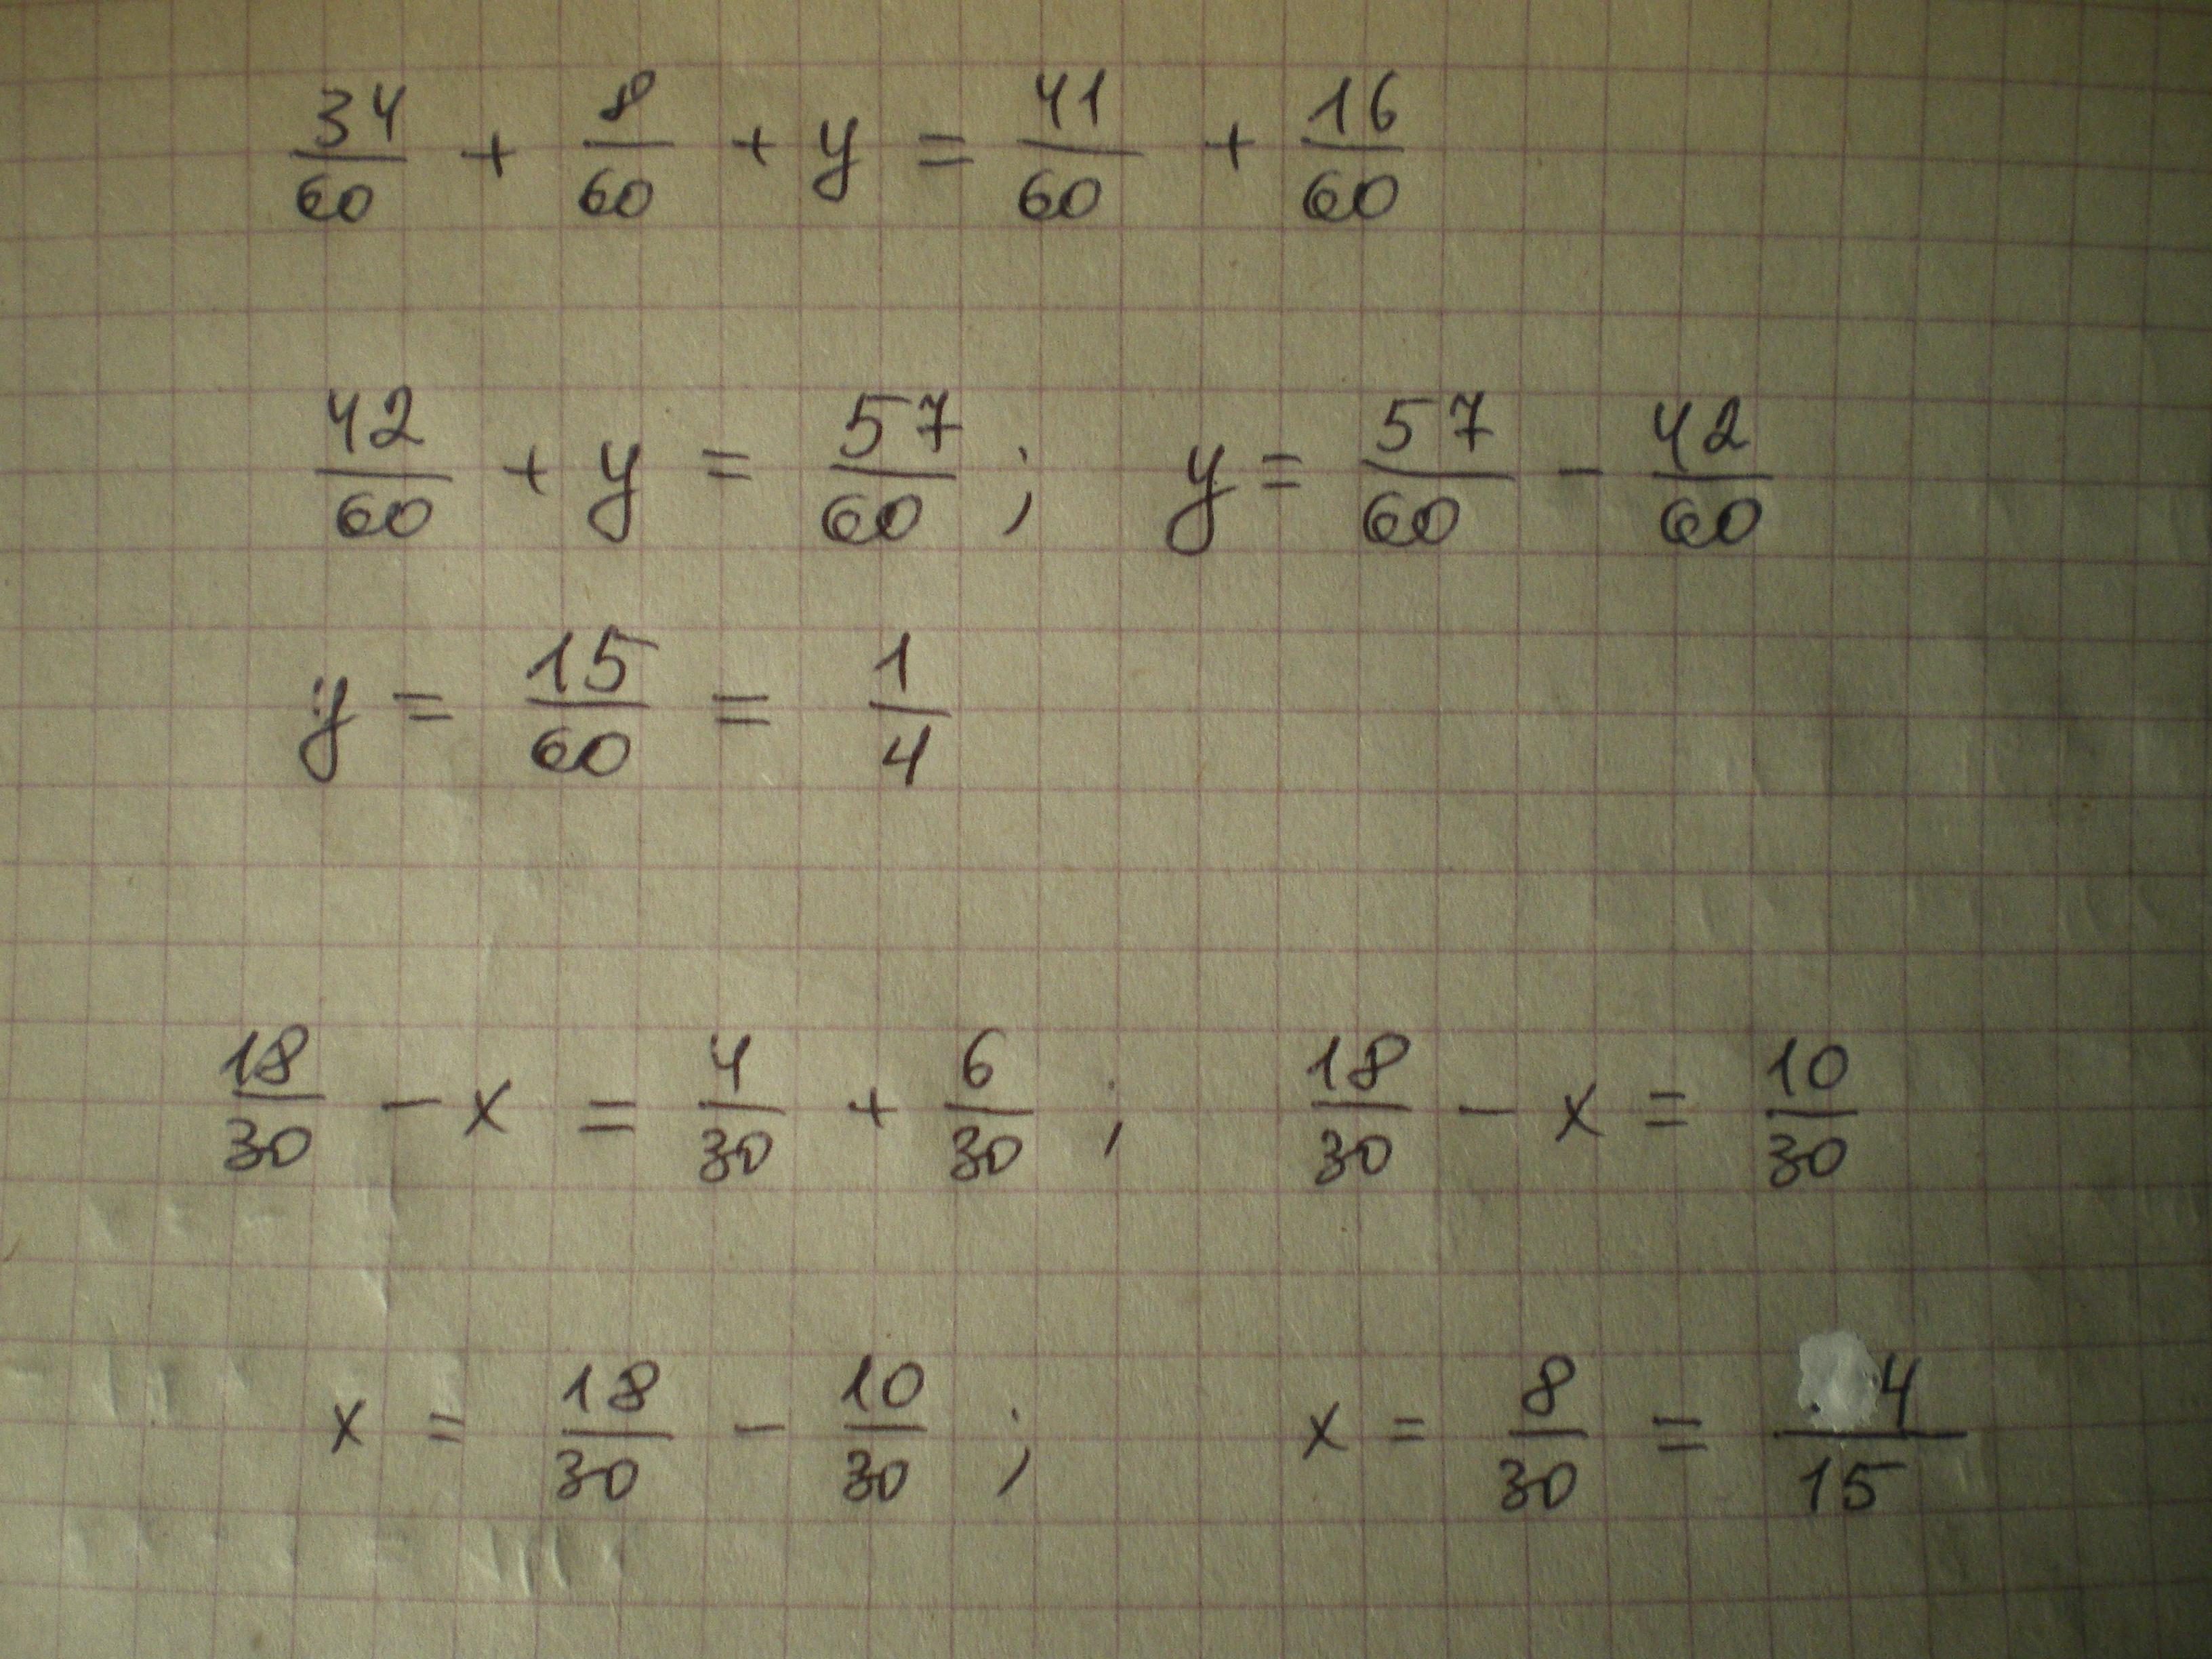 34/60 + 8/60 + y = 41/60 + 16/60
42/60 + y = 57/60 ; y = 57/60 - 42/60
y = 15/60 = 1/4
18/30 - x = 4/30 + 6/30 ; 18/30 - x = 10/30
x = 18/30 - 10/30 ; x = 8/30 = 4/15